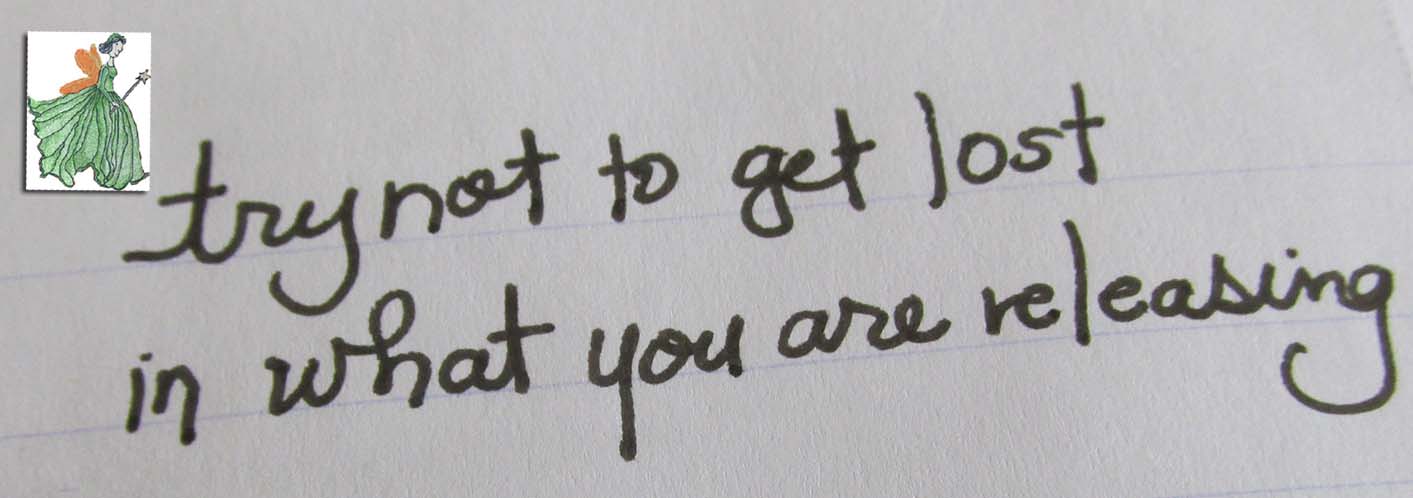 try not to get lost
in what you are releasing